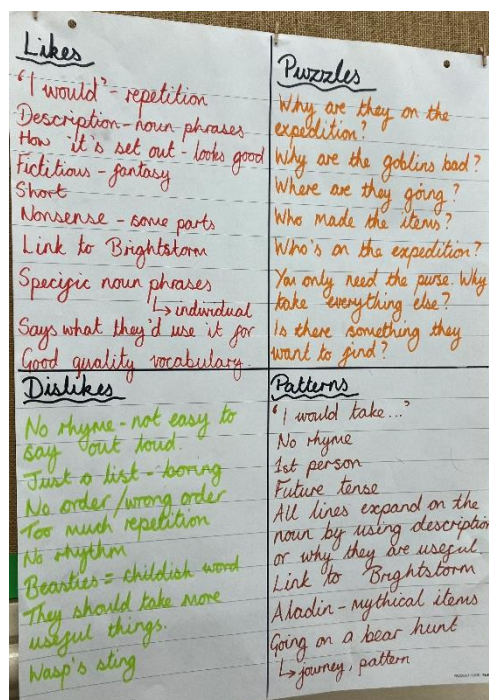 Likes
"I would" - repetition
Description - noun phrases
How it's set out - looks good
Fictitious - fantasy
Short
Nonsense - some parts
Link to Brightstorm
Specific noun phrases
↳ individual
Says what they'd use it for
Good quality vocabulary.
Puzzles
Why are they on the
expedition?
Why are the goblins bad?
Where are they going?
Who made the items?
Who's on the expedition?
You only need the purse. Why
take everything else?
Is there something they
want to find?
Dislikes
No rhyme - not easy to
say out loud.
Just a list - boring
No order/wrong order
Too much repetition
No rhythm
Beasties = childish word
They should take more
useful things.
Wasp's sting
Patterns
"I would take..."
No rhyme
1st person
Future tense
All lines expand on the
noun by using description
or why they are useful.
Link to Brightstorm
Aladin - mythical items
Going on a bear hunt
↳ journey, pattern